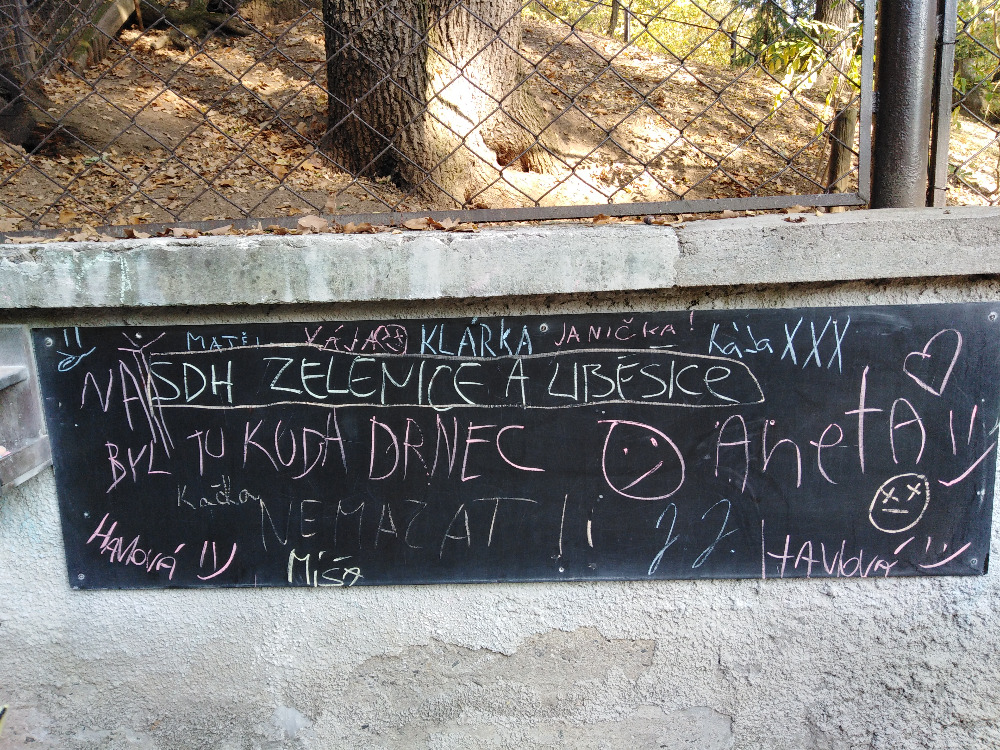 MATĚJ VÁJA KLÁRKA JANIČKA! Kája XXX
NÁŠ SDH ZELENICE A LIBĚŠICE
BYL TU KUDA DRNEC Aneta
Kačka NEMAZAT !i JJ
Havlová Míša Havlová